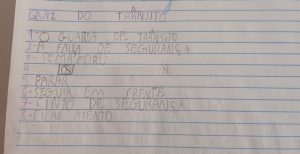 QUIZ DO TRÂNSITO
1-O GUARDA DE TRÂNSITO
2-A FAIXA DE SEGURANÇA
3-SEMÁFORO
4-
5-PARAR
6-SEGUIR EM FRENTE
7-CINTO DE SEGURANÇA
8-FICAR ATENTO